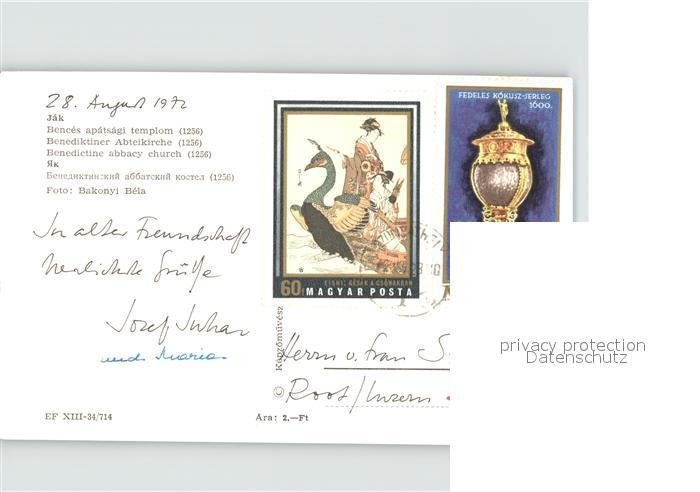 28. August 1972
Ják
Bencés apátsági templom (1256)
Benediktiner Abteikirche (1256)
Benedictine abbacy church (1256)
Як
Бенедиктинский аббатский костел (1256)
Foto: Bakonyi Béla
In alter Freundschaft
herzlichste Grüße
Jozef
und Maria
EF XIII-34/714
Ara: 2.—Ft
Képzőművész
©
60f
EISHI: GÉSÁK A CSÓNAKBAN
MAGYAR POSTA
FEDELES KÓKUSZ-SERLEG
1600.
M
Herrn u. Frau S
Root/Luzern
privacy protection
Datenschutz